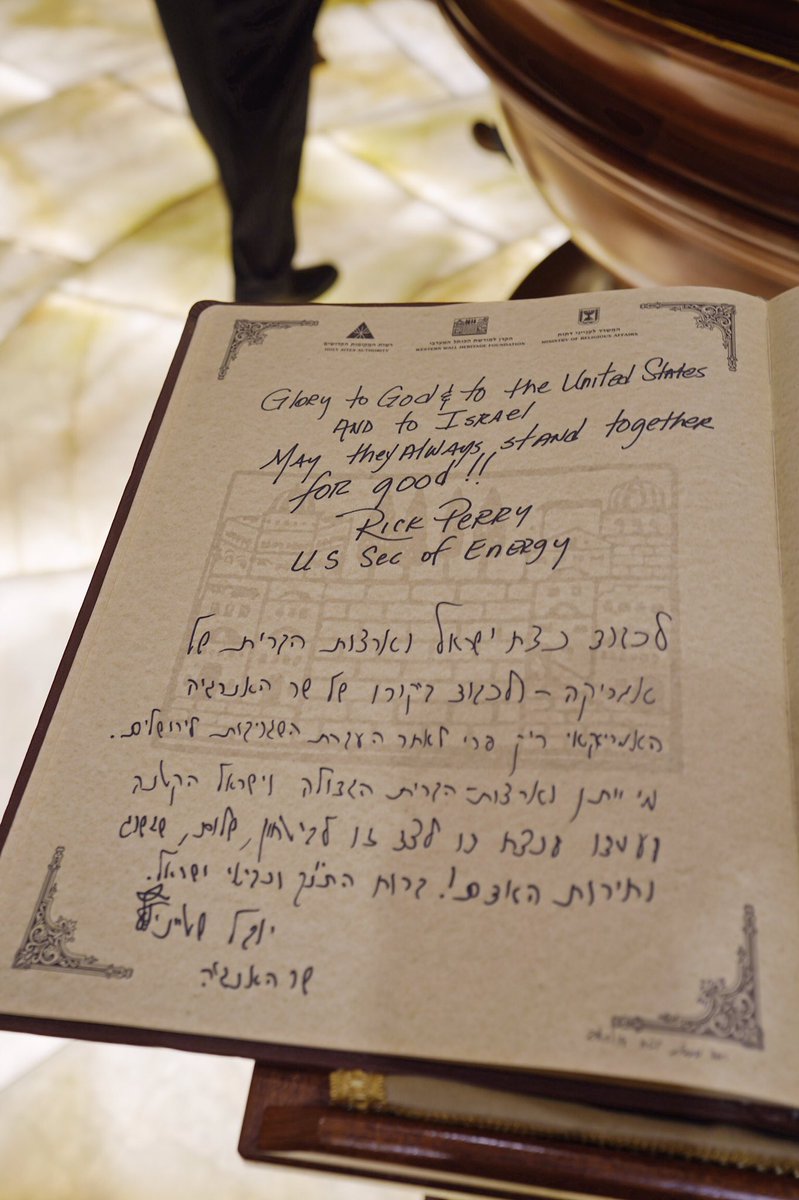 רשות המקומות הקדושים
HOLY SITES AUTHORITY
הקרן למורשת הכותל המערבי
WESTERN WALL HERITAGE FOUNDATION
המשרד לענייני דתות
MINISTRY OF RELIGIOUS AFFAIRS
Glory to God & to the United States
AND to Israel
MAY they Always stand together
for good!!
Rick Perry
US Sec of Energy
לכבוד נצח ישראל וארצות הברית של
אמריקה - ולכבוד ביקורו של שר האנרגיה
האמריקאי ריק פרי לאחר העברת השגרירות לירושלים.
מי ייתן וארצות-הברית הגדולה וישראל הקטנה
יעמדו לנצח זו לצד זו לביטחון, שלום, שגשוג
וחירות האדם! ברוח התנ"ך ונביאי ישראל.
יובל שטייניץ
שר האנרגיה